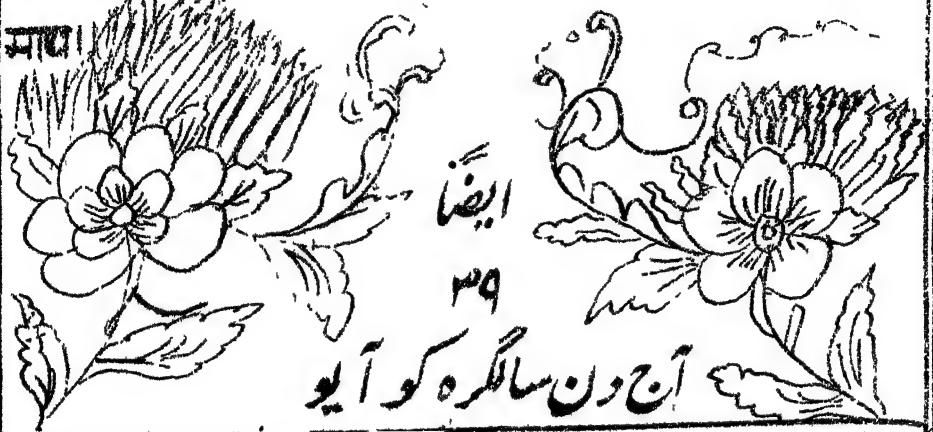 माघ।
ایضاً
۳۹
آج دن سالگرہ کو آیو